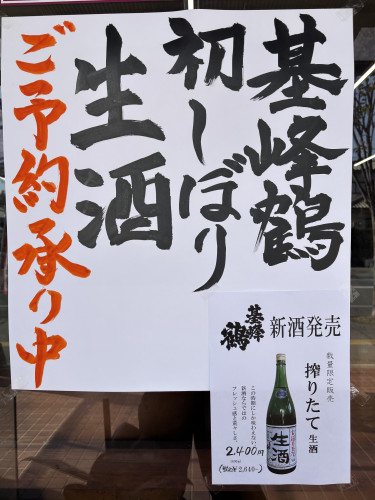 基峰鶴
初しぼり
生酒
ご予約承り中
基峰鶴
新酒発売
数量限定販売
搾りたて 生酒
この時期にしか味わえない、
新酒ならではの
フレッシュ感と荒々しさ。
2,400円
生酒